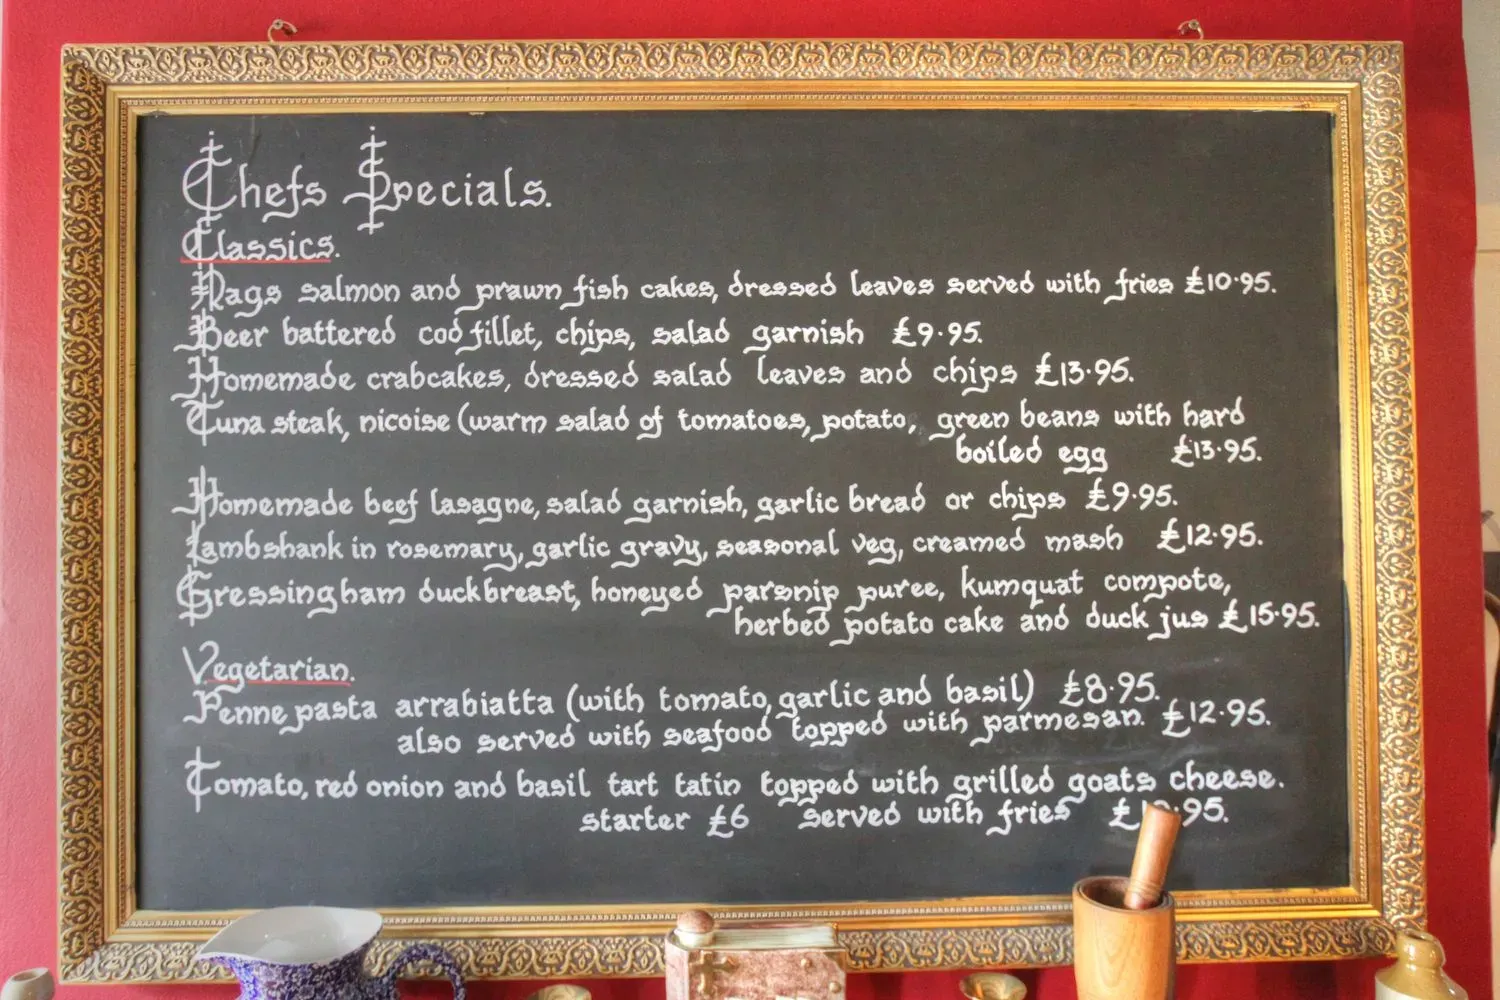 Chefs Specials.
Classics.
Rags salmon and prawn fish cakes, dressed leaves served with fries £10.95.
Beer battered cod fillet, chips, salad garnish £9.95.
Homemade crabcakes, dressed salad leaves and chips £13.95.
Tuna steak, nicoise (warm salad of tomatoes, potato, green beans with hard
boiled egg £13.95.
Homemade beef lasagne, salad garnish, garlic bread or chips £9.95.
Lambshank in rosemary, garlic gravy, seasonal veg, creamed mash £12.95.
Gressingham duckbreast, honeyed parsnip puree, kumquat compote,
herbed potato cake and duck jus £15.95.
Vegetarian.
Penne pasta arrabiatta (with tomato, garlic and basil) £8.95.
also served with seafood topped with parmesan. £12.95.
Tomato, red onion and basil tart tatin topped with grilled goats cheese.
starter £6 served with fries